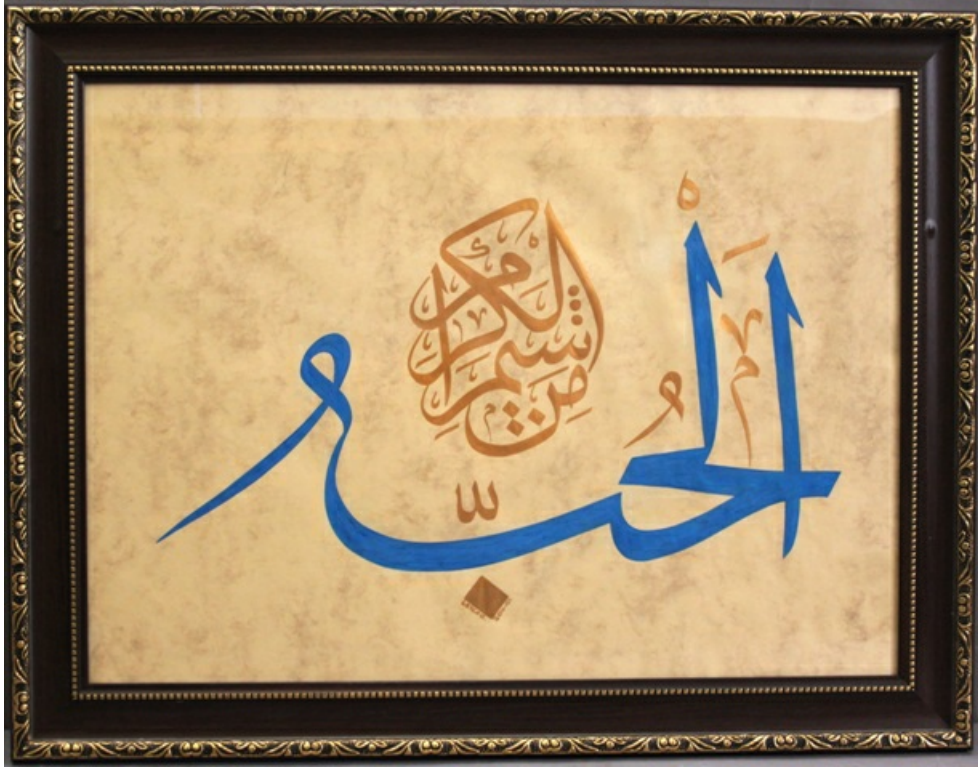 الْحُبّ
مِن شِيَمِ الكِرَام